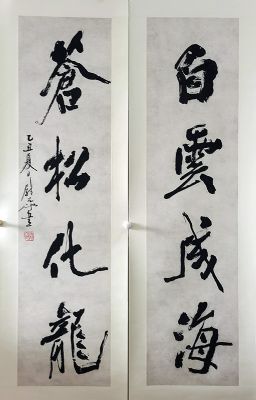 白雲成海
蒼松化龍
乙丑夏